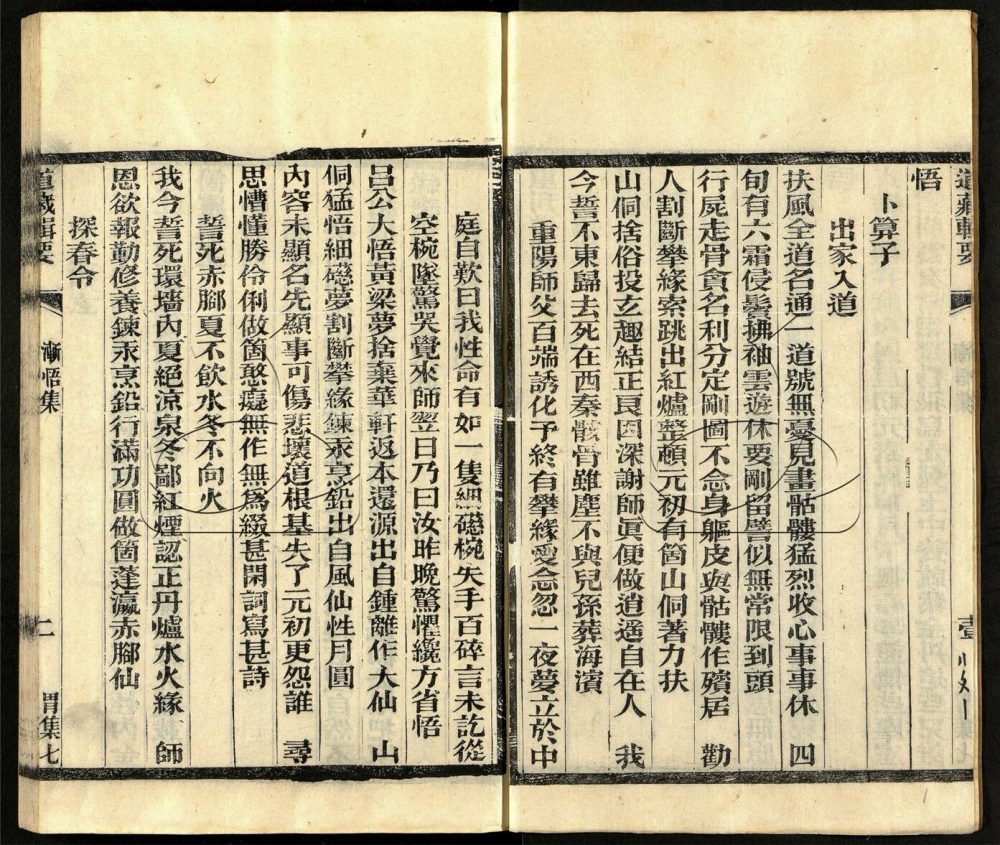 道藏輯要
悟
卜算子
出家入道
扶風全道名通一道號無憂見畫骷髏猛烈收心事事休　四
旬有六霜侵鬓拂袖雲遊休要剛留譬似無常限到頭
行屍走骨貪名利分定剛圖不念身軀皮與骷髏作殯居　勸
人割斷攀緣索跳出紅爐整頓元初有箇山侗著力扶
山侗捨俗投玄趣結正艮因深謝師眞便做逍遥自在人　我
今誓不東歸去死在西秦骸骨雖塵不與兒孫葬海濱
重陽師父百端誘化予終有攀緣愛念忽一夜夢立於中
庭自歎曰我性命有如一隻細磁椀失手百碎言未訖從
空椀墜驚哭覺來師翌日乃曰汝昨晚驚懼纔方省悟
呂公大悟黃粱夢捨棄華軒返本還源出自鍾離作大仙　山
侗猛悟細磁夢割斷攀緣鍊汞烹鉛出自風仙性月圓
內容未顯名先顯事可傷悲壞道根基失了元初更怨誰　尋
思懵懂勝伶俐做箇憨癡無作無爲綴甚閑詞寫甚詩
誓死赤腳夏不飲水冬不向火
我今誓死環墻內夏絕凉泉冬鄙紅煙認正丹爐水火緣　師
恩欲報勤修養鍊汞烹鉛行滿功圓做箇蓬瀛赤腳仙
探春令
道藏輯要
漸悟集
二
胃集七